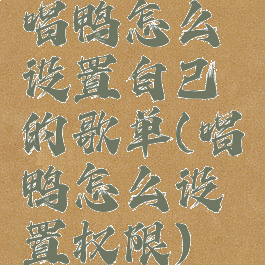 唱鸭怎么
设置自己
的歌单(唱
鸭怎么设
置权限)